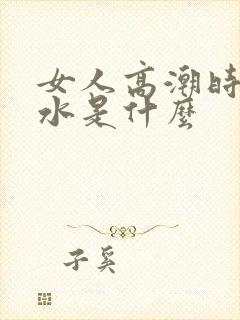 女人高潮时
水是什麼
子奚